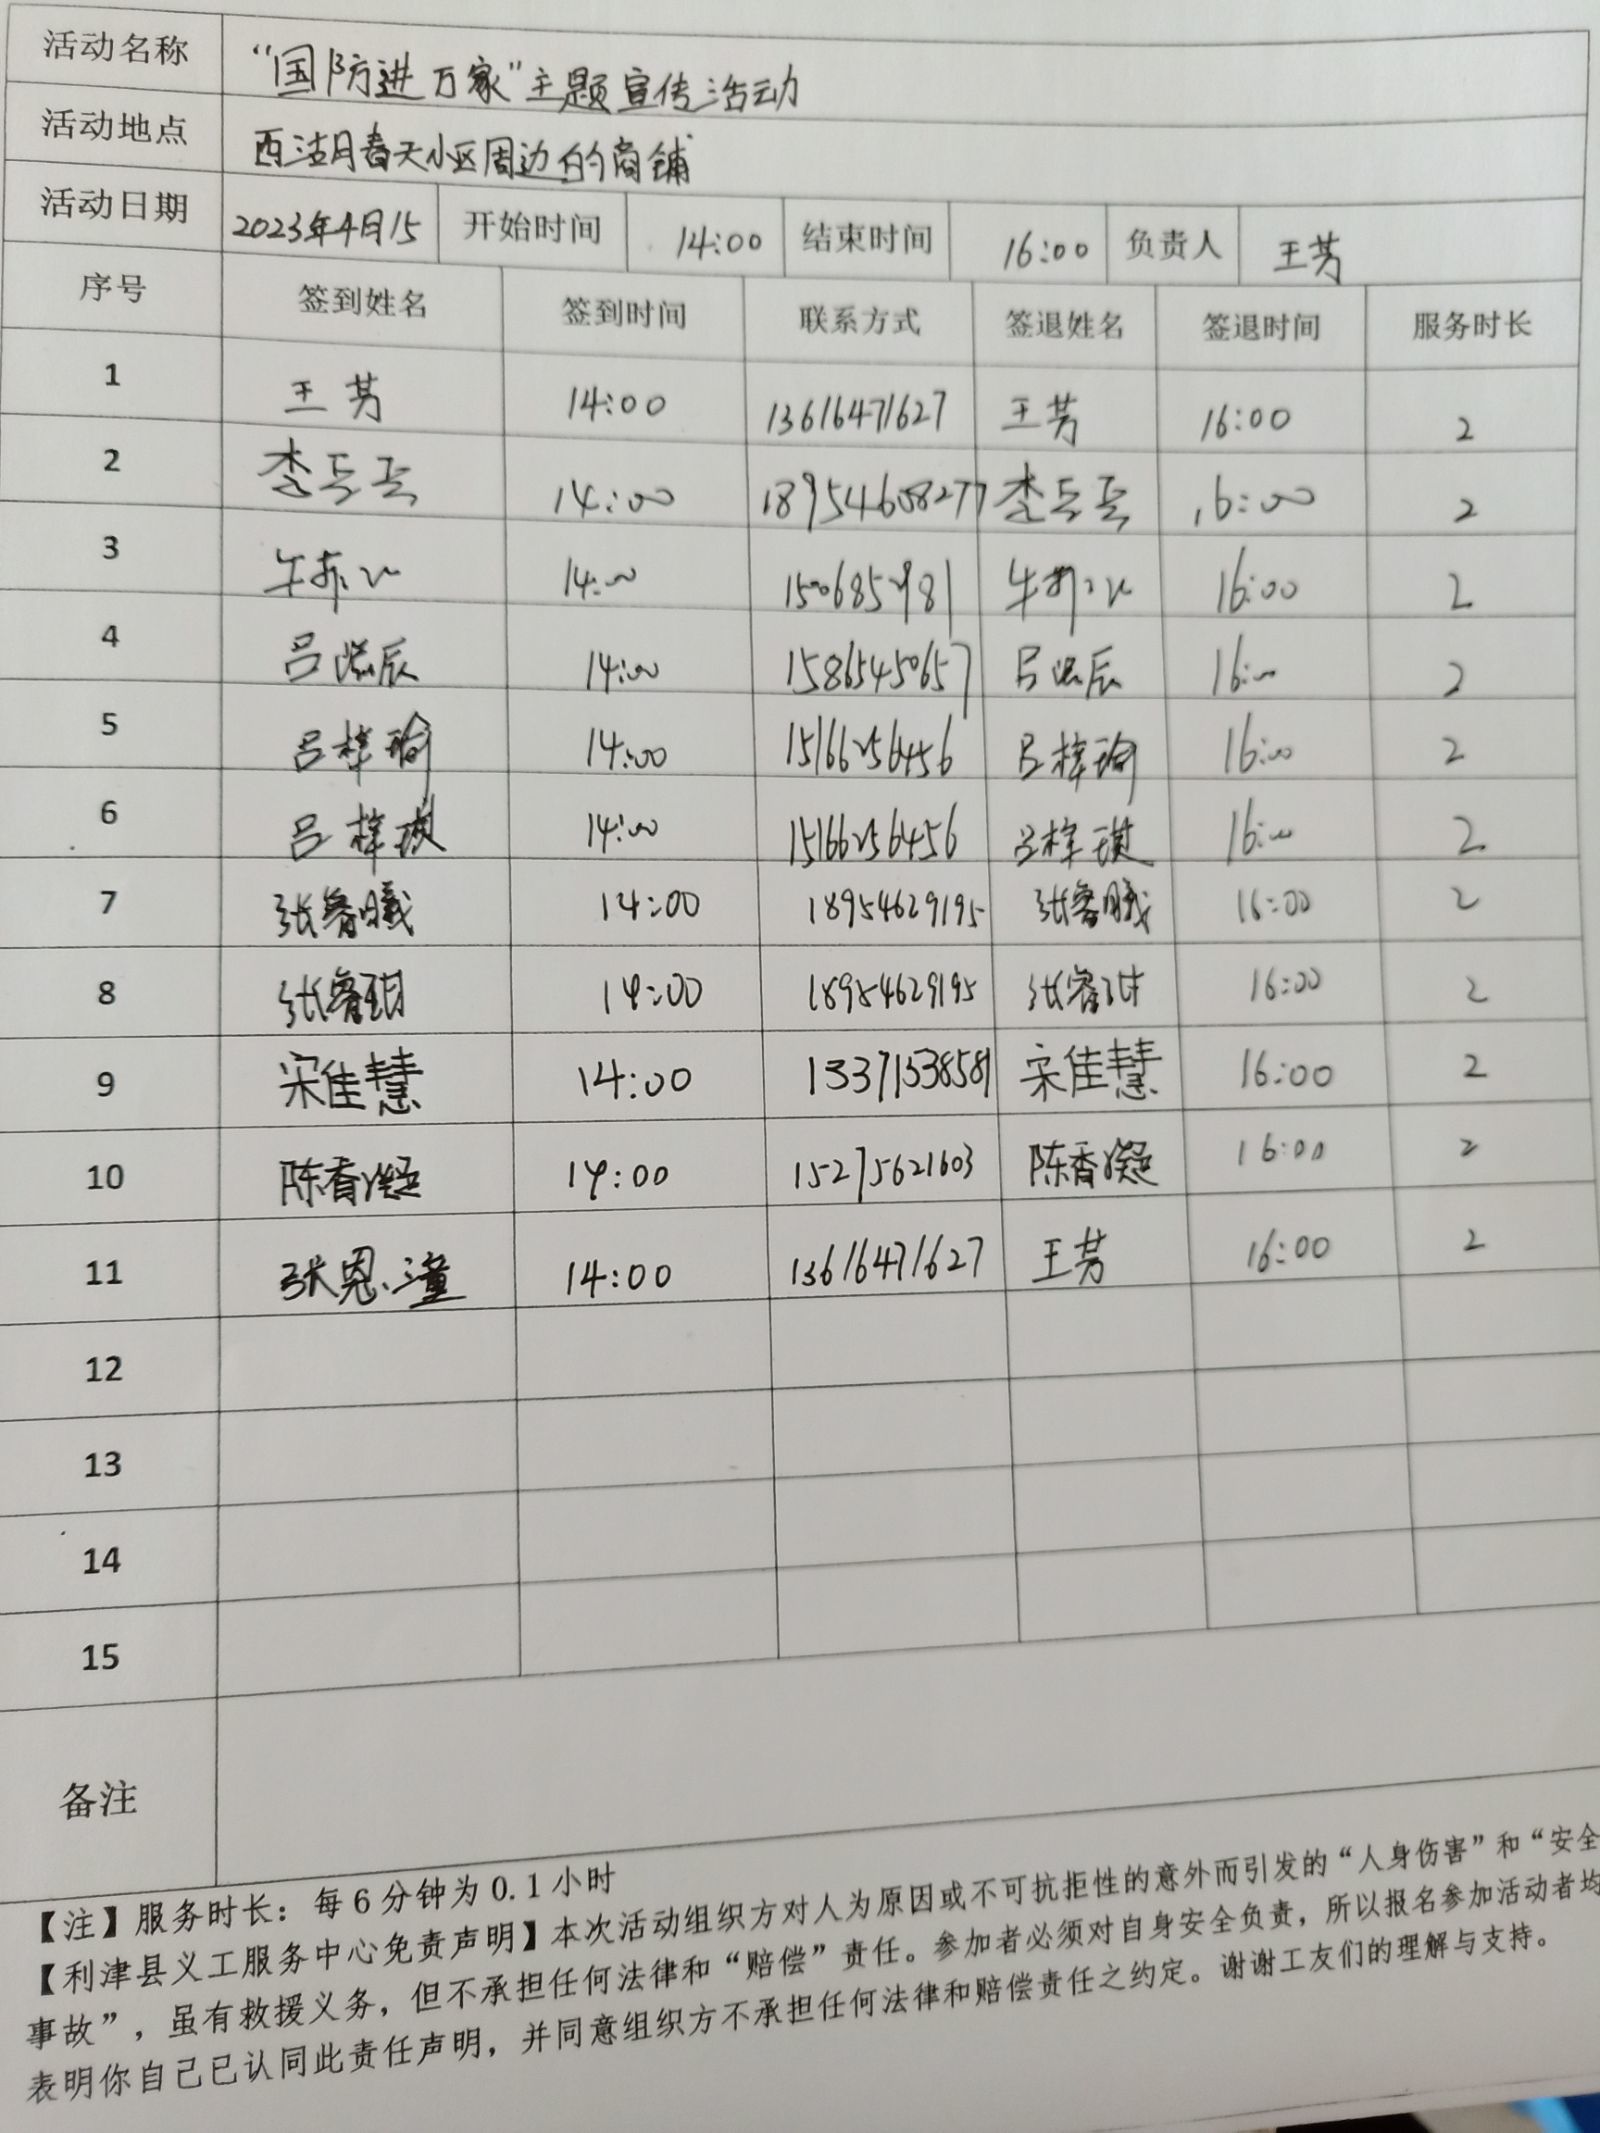 活动名称 “国防进万家”主题宣传活动
活动地点 西湖月春天小区周边的商铺
活动日期 2023年4月15 开始时间 14:00 结束时间 16:00 负责人 王芳
序号 签到姓名 签到时间 联系方式 签退姓名 签退时间 服务时长
1 王芳 14:00 13616471627 王芳 16:00 2
2 李 14:00 18954608277 李 16:00 2
3 14:00 16:00 2
4 吕 辰 14:00 15865450657 吕 辰 16:00 2
5 吕梓瑜 14:00 15166256456 吕梓瑜 16:00 2
6 吕梓琪 14:00 15166256456 吕梓琪 16:00 2
7 张睿曦 14:00 18954629195 张睿曦 16:00 2
8 张睿 14:00 18954629195 张睿 16:00 2
9 宋佳慧 14:00 13371538581 宋佳慧 16:00 2
10 陈香凝 14:00 15275621603 陈香凝 16:00 2
11 张恩潼 14:00 13616471627 王芳 16:00 2
12
13
14
15
备注
【注】服务时长：每6分钟为0.1小时
【利津县义工服务中心免责声明】本次活动组织方对人为原因或不可抗拒性的意外而引发的“人身伤害”和“安全
事故”，虽有救援义务，但不承担任何法律和“赔偿”责任。参加者必须对自身安全负责，所以报名参加活动者均
表明你自己已认同此责任声明，并同意组织方不承担任何法律和赔偿责任之约定。谢谢工友们的理解与支持。